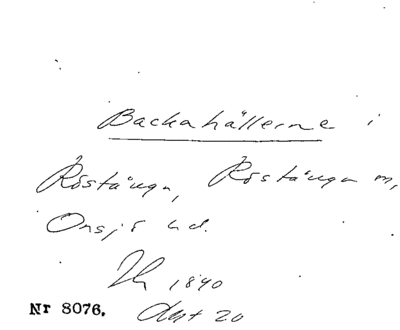 Backahällerne i
Röstånga, Röstånga m,
Onsjö hd.
1840
Nr 8076.